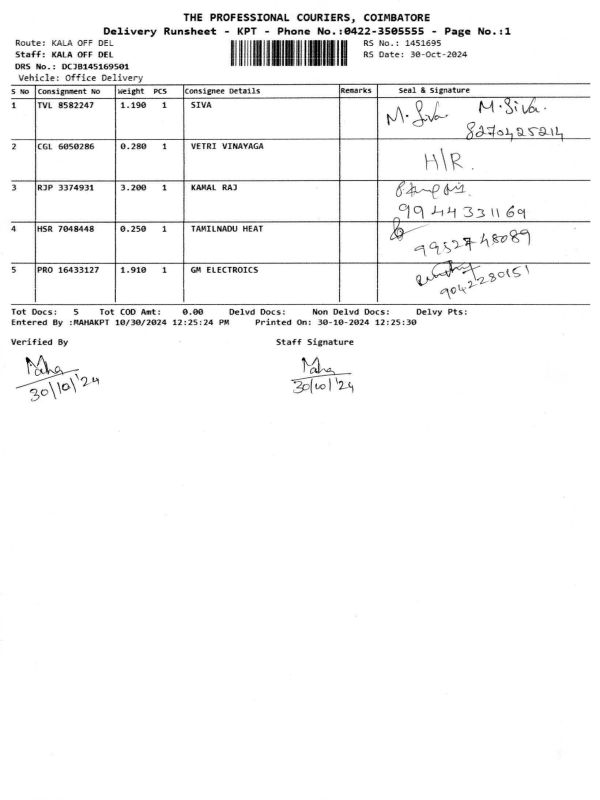 THE PROFESSIONAL COURIERS, COIMBATORE
Delivery Runsheet - KPT - Phone No.:0422-3505555 - Page No.:1
Route: KALA OFF DEL RS No.: 1451695
Staff: KALA OFF DEL RS Date: 30-Oct-2024
DRS No.: DCJB145169501
Vehicle: Office Delivery
S No Consignment No Weight PCS Consignee Details Remarks Seal & Signature
1 TVL 8582247 1.190 1 SIVA M. Siva M. Siva.
8270425214
2 CGL 6050286 0.280 1 VETRI VINAYAGA H/R.
3 RJP 3374931 3.200 1 KAMAL RAJ
9944331169
4 HSR 7048448 0.250 1 TAMILNADU HEAT 9952748089
5 PRO 16433127 1.910 1 GM ELECTROICS
9042280151
Tot Docs: 5 Tot COD Amt: 0.00 Delvd Docs: Non Delvd Docs: Delvy Pts:
Entered By :MAHAKPT 10/30/2024 12:25:24 PM Printed On: 30-10-2024 12:25:30
Verified By Staff Signature
Maha Maha
30/10/'24 30/10/'24